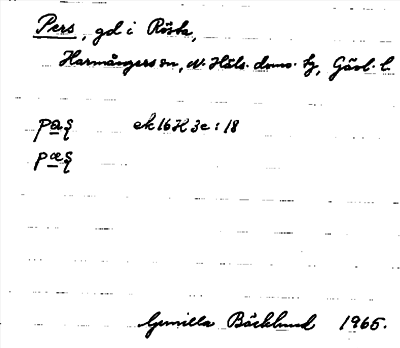 Pers, gd i Rösta,
Harmångers sn, N. Häls. doms. tg, Gävl. l.
paꞩ ek 16H 3e : 18
pæꞩ
Gunilla Bäcklund 1965.